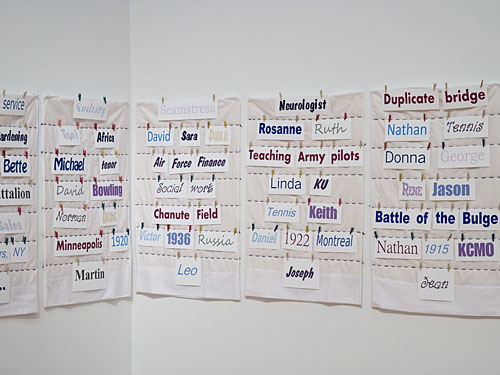 service
Gardening
Bette
Battalion
Sales
rs, NY
Africa
Michael tenor
David Bowling
Norman
Minneapolis 1920
Martin
Seamstress
David Sara
Air Force Finance
Social work
Chanute Field
Victor 1936 Russia
Leo
Neurologist
Rosanne Ruth
Teaching Army pilots
Linda KU
Tennis Keith
Daniel 1922 Montreal
Joseph
Duplicate bridge
Nathan Tennis
Donna George
Rene Jason
Battle of the Bulge
Nathan 1915 KCMO
Jean